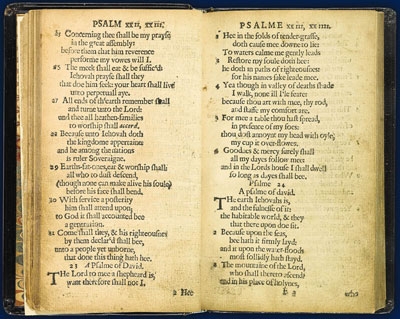 PSALM xxii, xxiii.
25 Concerning thee shall be my prayse
in the great assembly:
before them that him reverence
performe my vowes will I.
26 The meek shall eat & be suffic'd:
Iehovah prayse shall they
that doe him seek: your heart shall live
unto perpetuall aye.
27 All ends of th'earth remember shall
and turne unto the Lord:
and thee all heathen-families
to worship shall accord.
28 Because unto Iehovah doth
the kingdome appertaine:
and he among the nations
is ruler Soveraigne.
29 Earths-fat-ones, eat & worship shall:
all who to dust descend,
(though none can make alive his soule)
before his face shall bend.
30 With service a posterity
him shall attend upon;
to God it shall accounted bee
a generation.
31 Come shall they, & his righteousnes
by them declar'd shall bee,
unto a people yet unborne,
that done this thing hath hee.
23 A Psalme of David.
The Lord to mee a shepheard is,
want therefore shall not I.
2 Hee
PSALME xxiii, xxiiii.
2 Hee in the folds of tender-grasse,
doth cause mee downe to lie:
To waters calme me gently leads
3 Restore my soule doth hee:
he doth in paths of righteousnes:
for his names sake leade mee.
4 Yea though in valley of deaths shade
I walk, none ill I'le feare:
because thou art with mee, thy rod,
and staffe my comfort are.
5 For mee a table thou hast spread,
in presence of my foes:
thou dost annoynt my head with oyle,
my cup it over-flowes.
6 Goodnes & mercy surely shall
all my dayes follow mee:
and in the Lords house I shall dwell
so long as dayes shall bee.
Psalme 24
A psalme of david.
The earth Iehovahs is,
and the fulnesse of it:
the habitable world, & they
that there upon doe sit.
2 Because upon the seas,
hee hath it firmly layd:
and it upon the water-floods
most sollidly hath stayd.
3 The mountaine of the Lord,
who shall thereto ascend?
and in his place of holynes,
who